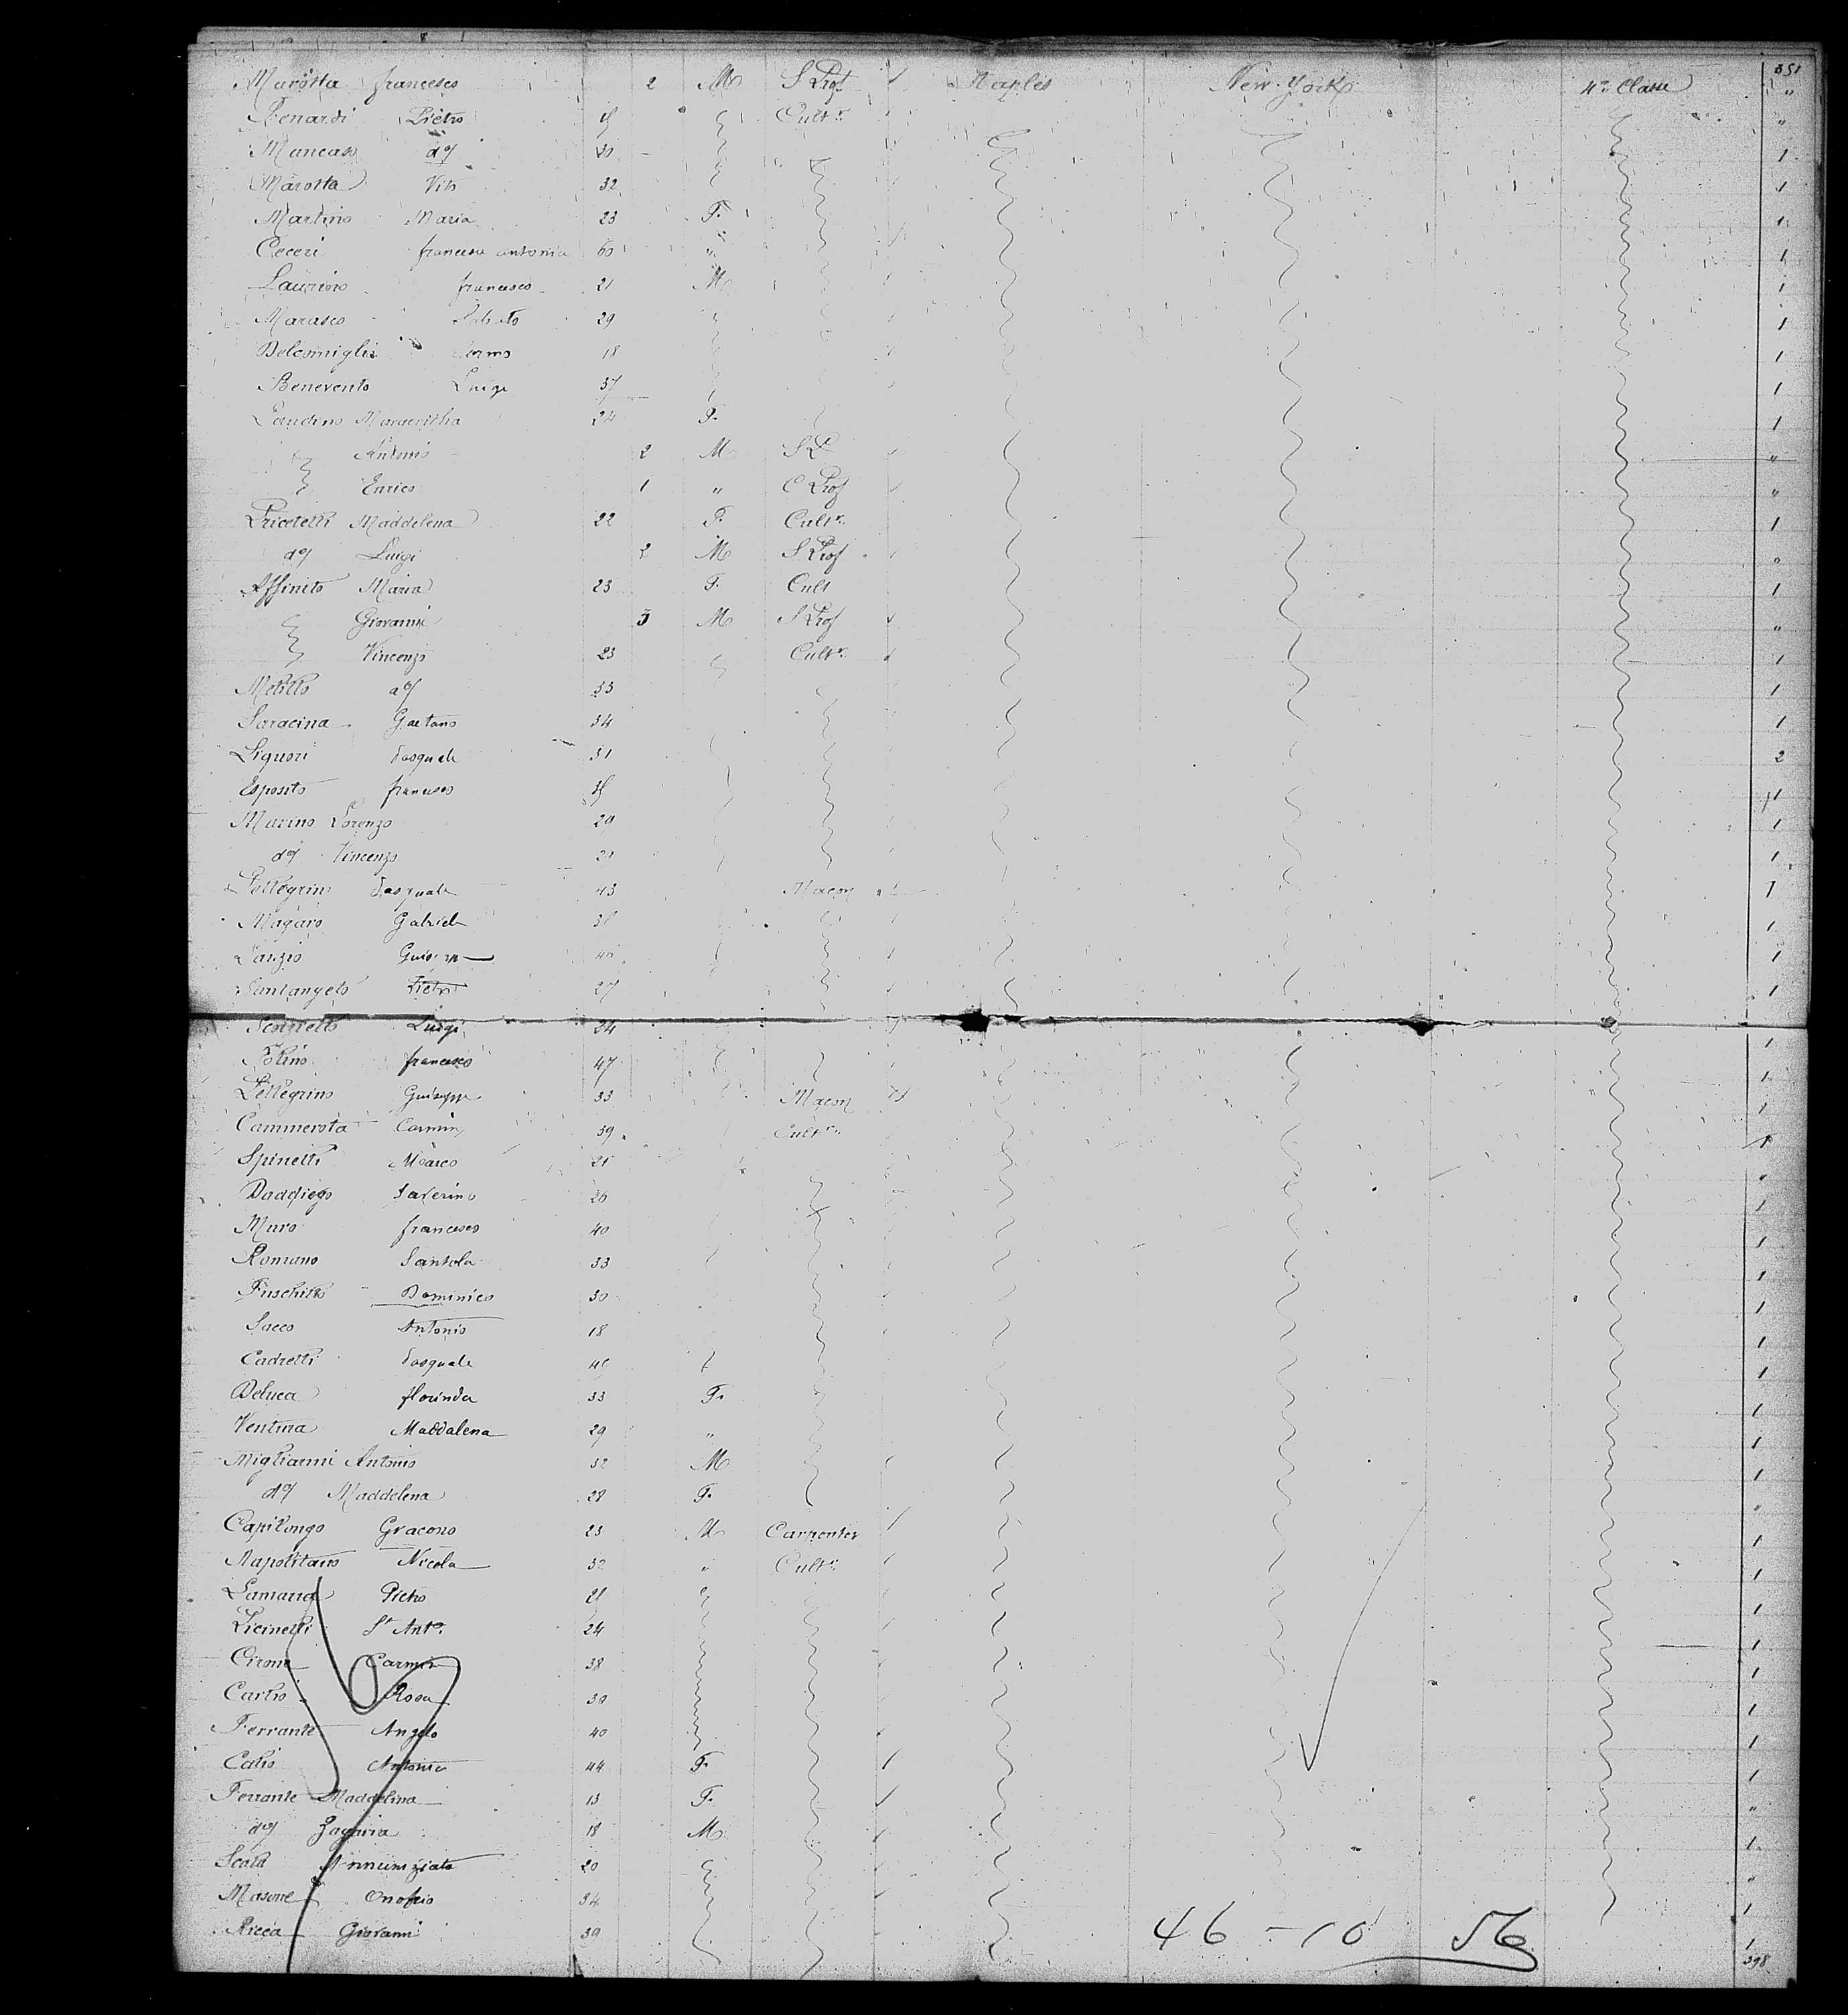 351
Marotta francesco 2 M S Prof Naples New-York 4e Classe "
Renardi Pietro Cultr. "
do 30 1
Marotta Vito 32 1
Martino Maria 23 F. 1
Ceceri francesca antonia 60 " 1
francesco 21 M 1
Marasco 29 1
18 1
Benevento Luigi 37 1
Margaritha 24 F. 1
Antonio 2 M S P "
Enrico 1 " S Prof "
Maddelena 22 F. Cultr. 1
do Luigi 2 M S Prof "
Affinito Maria 23 F. Cult 1
Giovanni 3 M S Prof "
Vincenzo 23 Cultr. 1
Melillo do 33 1
Saracina Gaetano 34 1
Liquori Pasquale 31 2
Esposito francesco 1
Marino Lorenzo 29 1
do Vincenzo 1
Pellegrino Pasquale 43 Macon 1
Magaro Gabriele 1
1
Santangelo Pietro 27 1
Luigi 34
Polino francesco 47 1
Pellegrino Guiseppe 33 Macon 1
Cammerota Carmin 39 Cultr. 1
Spinelli Marco 21 1
Daddiego Saverino 20 "
Muro francesco 40 1
Romano Santola 33 1
Fuschillo Dominico 30 1
Sacco Antonio 18 1
Cadretti Pasquale 1
Deluca florinda 33 F. 1
Ventura Maddalena 29 " 1
Miglianni Antonio 32 M 1
do Maddelena 28 F. 1
Capilongo Gracono 23 M Carpenter "
Napolitano Nicola 32 " Cultr. 1
Lamarra Pietro 21 1
St Anto. 24 1
Cirone Carmin 38 1
Carlio Rosa 30 1
Ferrante Angelo 40 1
Calio Antonia 44 F. 1
Ferrante Maddelina 13 F. 1
do Zagaria 18 M "
Scala Annunziata 20 1
Masone Onofrio 34 "
Ricca Giovanni 39 1
46 - 10 56
1
398